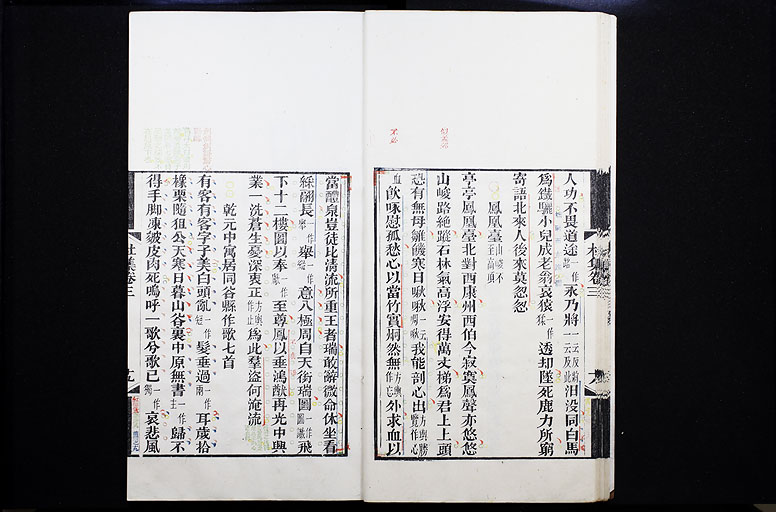 人功不畏道途一作路永乃將一云反將一云及此汨没同白馬
為鐵驪小兒成老翁哀猿一作猱透却墜死鹿力所窮
寄語北來人後來莫怱怱
鳳凰臺山峻不至高頂
亭亭鳳凰臺北對西康州西伯今寂寞鳳聲亦悠悠
山峻路絶蹤石林氣高浮安得萬丈梯為君上上頭
恐有無母雛饑寒日啾啾我能剖心出
血飲啄慰孤愁心以當竹實炯然無外求血以
當醴泉豈徒比清流所重王者瑞敢辭微命休坐看
綵翮長一作舉意八極周自天銜瑞圖飛
下十二樓圖以奉一作獻至尊鳳以垂鴻猷再光中興
業一洗蒼生憂深衷正為此羣盗何淹流
乾元中寓居同谷縣作歌七首
有客有客字子美白頭亂一作短髮垂過一作兩耳歲拾
橡栗隨狙公天寒日暮山谷裏中原無書一作主歸不
得手脚凍皴皮肉死嗚呼一歌兮歌已一作獨哀悲風
杜集卷三
杜集卷三